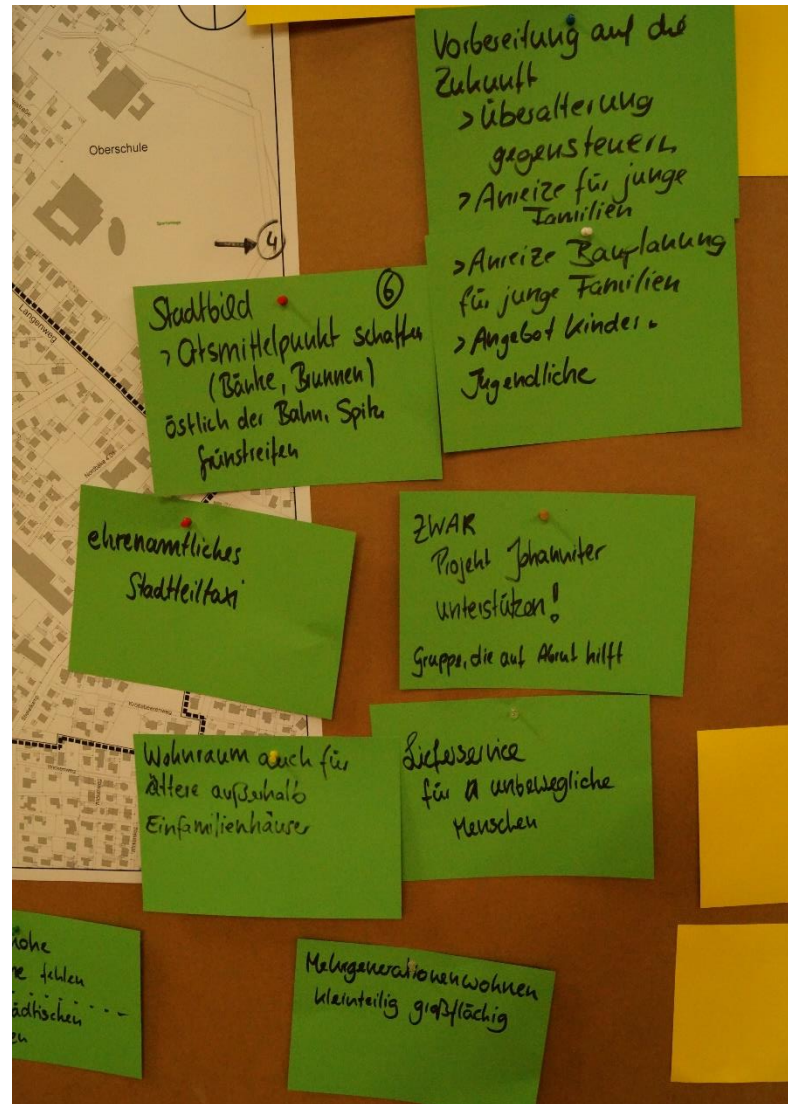 Vorbereitung auf die
Zukunft
> Überalterung
gegensteuern
> Anreize für junge
Familien
> Anreize Bauplanung
für junge Familien
> Angebot Kinder
Jugendliche
Oberschule
4
Langenweg
Stadtbild
6
> Ortsmittelpunkt schaffen
(Bänke, Brunnen)
östlich der Bahn, Spitze
Grünstreifen
ehrenamtliches
Stadtteiltaxi
ZWAR
Projekt Johanniter
unterstützen!
Gruppe, die auf Abruf hilft
Wohnraum auch für
Ältere außerhalb
Einfamilienhäuser
Lieferservice
für unbewegliche
Menschen
fehlen
Mehrgenerationenwohnen
kleinteilig großflächig